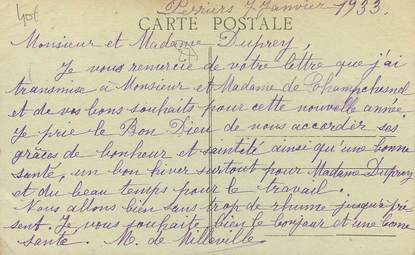 Perriers 7 Janvier 1933.
CARTE POSTALE
Monsieur et Madame Duprey,
Je vous remercie de votre lettre que j'ai
transmise à Monsieur et Madame de
et de vos bons souhaits pour cette nouvelle année.
Je prie le Bon Dieu de vous accorder ses
grâces de bonheur et santité ainsi qu'une bonne
santé, un bon hiver surtout pour Madame Duprey
et du beau temps pour le travail.
Nous allons bien sans trop de rhume jusqu'à pré
sent. Je vous souhaite bien le bonjour et une bonne
santé. M. de Milleville